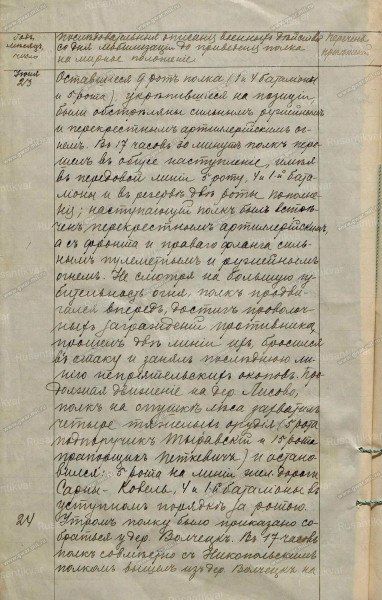 Годъ, месяцъ, число
последовательное описание военныхъ действий
со дня мобилизации до приведения полка
на мирное положение.
Июня
23
Оставшиеся 9 ротъ полка (1 и 4 баталионы
и 5 рота), укрепившиеся на позиции
были обстреляны сильнымъ ружейнымъ
и перекрестнымъ артиллерийскимъ ог-
немъ. Въ 17 часовъ 30 минутъ полкъ пере-
шелъ въ общее наступление, имея
въ передовой линии 5 роту, 4 и 1й бата-
лионы и въ резерве две роты
наступающий полкъ былъ встре-
ченъ перекрестнымъ артиллерийскимъ,
а съ фронта и праваго фланга силь-
нымъ пулеметнымъ и ружейнымъ
огнемъ. Не смотря на большую гу-
бительность огня, полкъ продви-
гался впередъ, достигъ проволоч-
ныхъ заграждений противника,
прошелъ две линии ихъ, бросился
въ атаку и занялъ последнюю ли-
нию неприятельскихъ окоповъ. Про-
должая движение на дер. Лисово,
полкъ на опушке леса захватилъ
четыре тяжелыхъ орудия (5 рота
подпоручикъ и 15 рота
прапорщикъ Петкевичъ) и остано-
вился: 5 рота на линии жел. дороги
Сарны-Ковель, 4 и 1й баталионы въ
уступномъ порядке за ротою.
24
Утромъ полку было приказано со-
браться у дер. Волчецкъ. Въ 17 часовъ
полкъ совместно съ Никопольскимъ
полкомъ вышелъ изъ дер. Волчецкъ на